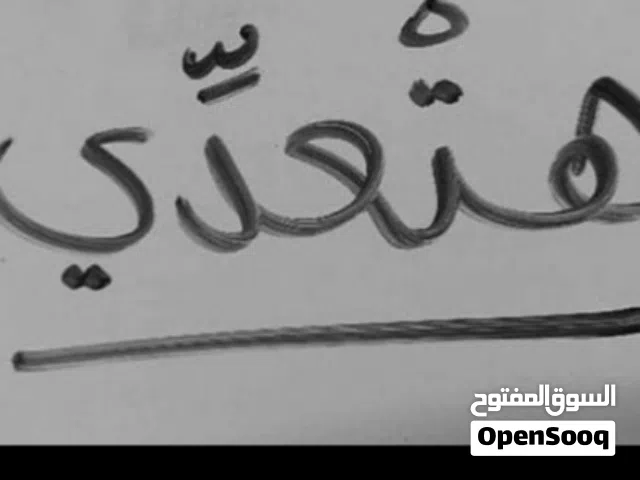 هتْعدِّي
السوق المفتوح
OpenSooq